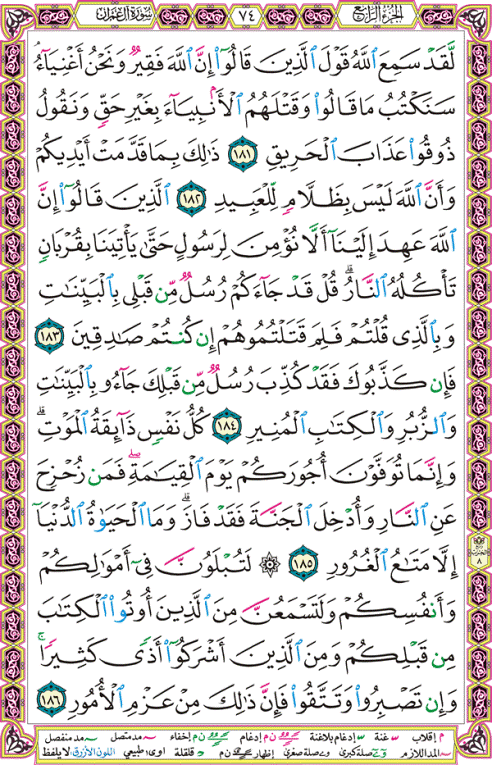 الجزء الرابع ٧٤ سورة آل عمران
لَّقَدْ سَمِعَ اللَّهُ قَوْلَ الَّذِينَ قَالُوٓا۟ إِنَّ اللَّهَ فَقِيرٌ وَنَحْنُ أَغْنِيَآءُ
سَنَكْتُبُ مَا قَالُوا۟ وَقَتْلَهُمُ الْأَنۢبِيَآءَ بِغَيْرِ حَقٍّ وَنَقُولُ
ذُوقُوا۟ عَذَابَ الْحَرِيقِ ١٨١ ذَٰلِكَ بِمَا قَدَّمَتْ أَيْدِيكُمْ
وَأَنَّ اللَّهَ لَيْسَ بِظَلَّامٍ لِّلْعَبِيدِ ١٨٢ الَّذِينَ قَالُوٓا۟ إِنَّ
اللَّهَ عَهِدَ إِلَيْنَآ أَلَّا نُؤْمِنَ لِرَسُولٍ حَتَّىٰ يَأْتِيَنَا بِقُرْبَانٍ
تَأْكُلُهُ النَّارُ ۗ قُلْ قَدْ جَآءَكُمْ رُسُلٌ مِّن قَبْلِى بِالْبَيِّنَٰتِ
وَبِالَّذِى قُلْتُمْ فَلِمَ قَتَلْتُمُوهُمْ إِن كُنتُمْ صَٰدِقِينَ ١٨٣
فَإِن كَذَّبُوكَ فَقَدْ كُذِّبَ رُسُلٌ مِّن قَبْلِكَ جَآءُو بِالْبَيِّنَٰتِ
وَالزُّبُرِ وَالْكِتَٰبِ الْمُنِيرِ ١٨٤ كُلُّ نَفْسٍ ذَآئِقَةُ الْمَوْتِ ۗ
وَإِنَّمَا تُوَفَّوْنَ أُجُورَكُمْ يَوْمَ الْقِيَٰمَةِ ۖ فَمَن زُحْزِحَ
عَنِ النَّارِ وَأُدْخِلَ الْجَنَّةَ فَقَدْ فَازَ ۗ وَمَا الْحَيَوٰةُ الدُّنْيَآ
إِلَّا مَتَٰعُ الْغُرُورِ ١٨٥ ۞ لَتُبْلَوُنَّ فِىٓ أَمْوَٰلِكُمْ
وَأَنفُسِكُمْ وَلَتَسْمَعُنَّ مِنَ الَّذِينَ أُوتُوا۟ الْكِتَٰبَ
مِن قَبْلِكُمْ وَمِنَ الَّذِينَ أَشْرَكُوٓا۟ أَذًى كَثِيرًا ۚ
وَإِن تَصْبِرُوا۟ وَتَتَّقُوا۟ فَإِنَّ ذَٰلِكَ مِنْ عَزْمِ الْأُمُورِ ١٨٦
م إقلاب س غنة س إدغام بلاغنة ن م إدغام ن م إخفاء مد متصل مد منفصل
المد اللازم صلة كبرى صلة صغرى إظهار ن م قلقلة اوى: طبيعي اللون الأزرق: لا يلفظ